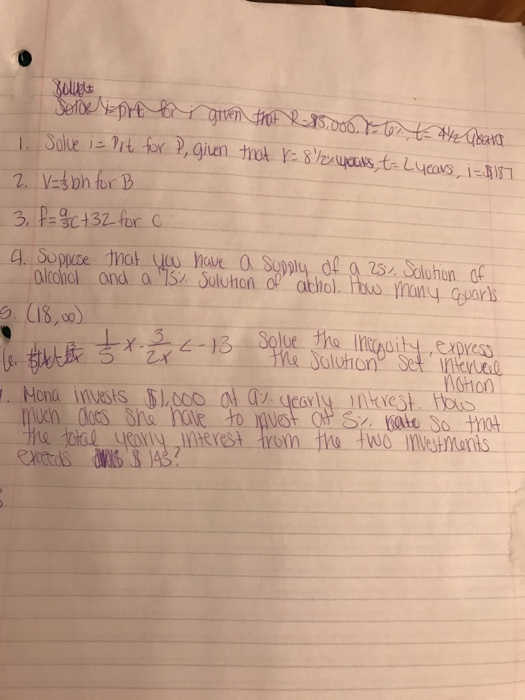 Solve i=prt for i given that P=$5,000. r=6%, t=4½ years
1. Solve i=Prt for P, given that r=8½% years, t=2 years, i=$187
2. V=⅓bh for B
3. f=9/5c+32 for C
4. Suppose that you have a supply of a 25% Solution of
alcohol and a 75% Solution of alchol. How many quarts
5. (18,∞)
6. 1/5 x - 3/2x < -13 Solve the inequity, express
the solution set interveil
notion
1. Mona invests $1,000 at 9% yearly interest. How
much does she have to invest at 5% rate so that
the total yearly interest from the two investments
exceeds $143?